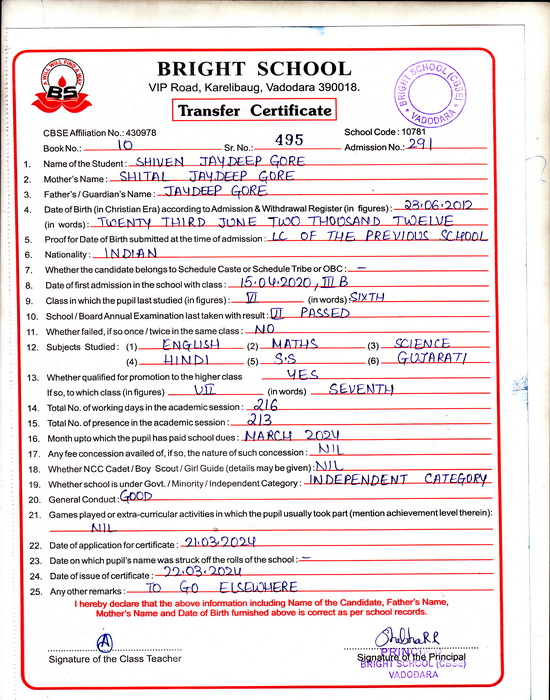 A WILL WILL FIND A WAY
BS
BRIGHT SCHOOL
VIP Road, Karelibaug, Vadodara 390018.
Transfer Certificate
BRIGHT SCHOOL (CBSE)
VADODARA
CBSE Affiliation No.: 430978
School Code : 10781
Book No.: 10 Sr. No.: 495 Admission No.: 291
1. Name of the Student : SHIVEN JAYDEEP GORE
2. Mother's Name : SHITAL JAYDEEP GORE
3. Father's / Guardian's Name : JAYDEEP GORE
4. Date of Birth (in Christian Era) according to Admission & Withdrawal Register (in figures) : 23.06.2012
(in words) : TWENTY THIRD JUNE TWO THOUSAND TWELVE
5. Proof for Date of Birth submitted at the time of admission : LC OF THE PREVIOUS SCHOOL
6. Nationality : INDIAN
7. Whether the candidate belongs to Schedule Caste or Schedule Tribe or OBC : —
8. Date of first admission in the school with class : 15.04.2020, III B
9. Class in which the pupil last studied (in figures) : VI (in words) : SIXTH
10. School / Board Annual Examination last taken with result : VI PASSED
11. Whether failed, if so once / twice in the same class : NO
12. Subjects Studied : (1) ENGLISH (2) MATHS (3) SCIENCE
(4) HINDI (5) S.S (6) GUJARATI
13. Whether qualified for promotion to the higher class YES
If so, to which class (in figures) VII (in words) SEVENTH
14. Total No. of working days in the academic session : 216
15. Total No. of presence in the academic session : 213
16. Month upto which the pupil has paid school dues : MARCH 2024
17. Any fee concession availed of, if so, the nature of such concession : NIL
18. Whether NCC Cadet / Boy Scout / Girl Guide (details may be given) : NIL
19. Whether school is under Govt. / Minority / Independent Category : INDEPENDENT CATEGORY
20. General Conduct : GOOD
21. Games played or extra-curricular activities in which the pupil usually took part (mention achievement level therein):
NIL
22. Date of application for certificate : 21.03.2024
23. Date on which pupil's name was struck off the rolls of the school : —
24. Date of issue of certificate : 22.03.2024
25. Any other remarks : TO GO ELSEWHERE
I hereby declare that the above information including Name of the Candidate, Father's Name,
Mother's Name and Date of Birth furnished above is correct as per school records.
Signature of the Class Teacher
Signature of the Principal
BRIGHT SCHOOL (CBSE)
VADODARA